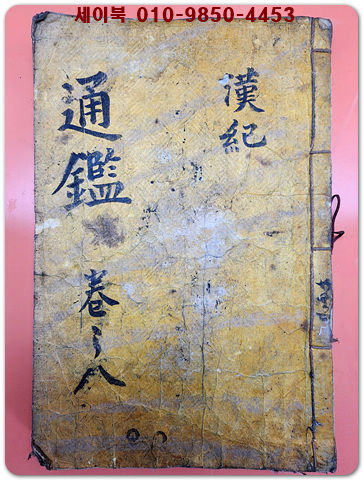 세이북 010-9850-4453
漢紀
通鑑
卷之八